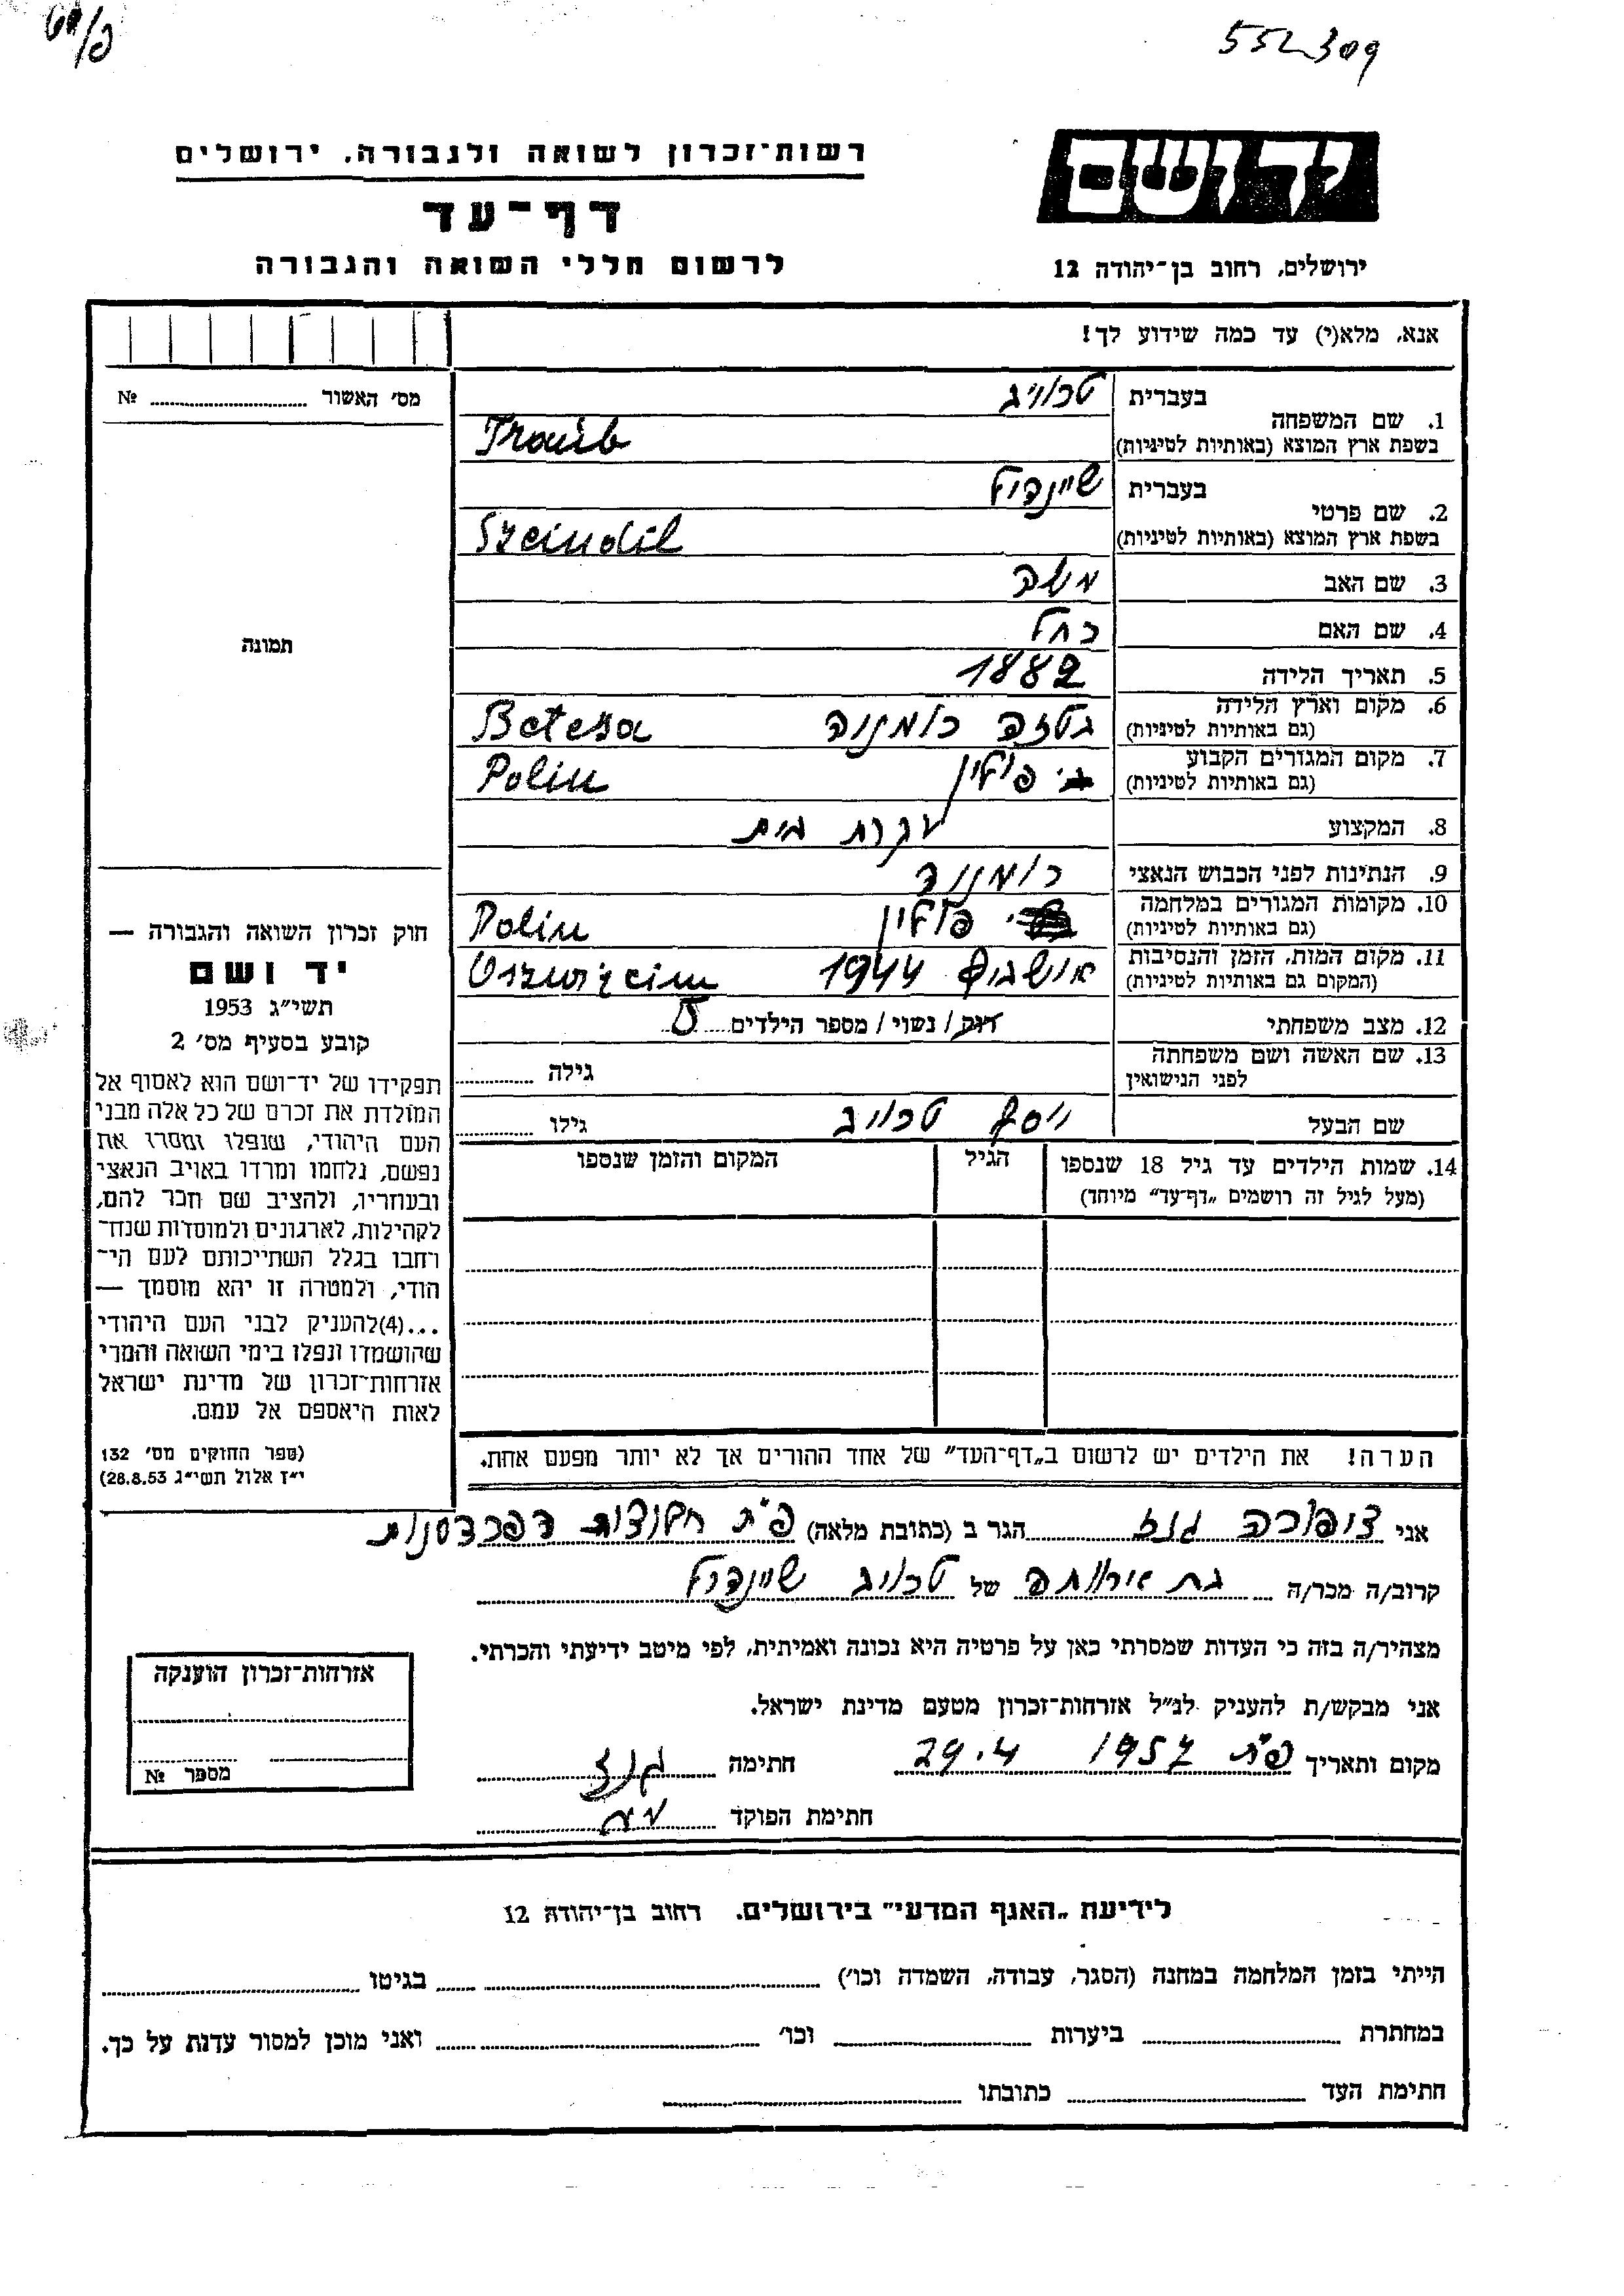 552309
רשות־זכרון לשואה ולגבורה, ירושלים
יד ושם
דף־עד
לרשום חללי השואה והגבורה
ירושלים, רחוב בן־יהודה 12
אנא, מלא(י) עד כמה שידוע לך!
מס' האשור № 
1. שם המשפחה
בעברית טרויב
בשפת ארץ המוצא (באותיות לטיניות) Trauib
2. שם פרטי
בעברית שיינדיל
בשפת ארץ המוצא (באותיות לטיניות) Szeindil
3. שם האב משה
4. שם האם רחל
5. תאריך הלידה 1882
6. מקום וארץ הלידה רומניה
(גם באותיות לטיניות)
7. מקום המגורים הקבוע פולין Polin
(גם באותיות לטיניות)
8. המקצוע עקרת בית
9. הנתינות לפני הכבוש הנאצי
10. מקומות המגורים במלחמה פולין Polin
(גם באותיות לטיניות)
11. מקום המות, הזמן והנסיבות 1944
(המקום גם באותיות לטיניות)
12. מצב משפחתי רוק / נשוי / מספר הילדים 5
13. שם האשה ושם משפחתה
לפני הנישואין גילה
שם הבעל יוסף טרויב גילו
14. שמות הילדים עד גיל 18 שנספו הגיל המקום והזמן שנספו
(מעל לגיל זה רושמים „דף־עד" מיוחד)
הערה! את הילדים יש לרשום ב„דף־העד" של אחד ההורים אך לא יותר מפעם אחת.
תמונה
חוק זכרון השואה והגבורה —
יד ושם
תשי"ג 1953
קובע בסעיף מס' 2
תפקידו של יד־ושם הוא לאסוף אל
המולדת את זכרם של כל אלה מבני
העם היהודי, שנפלו ומסרו את
נפשם, נלחמו ומרדו באויב הנאצי
ובעוזריו, ולהציב שם וזכר להם,
לקהילות, לארגונים ולמוסדות שנח־
רחבו בגלל השתייכותם לעם הי־
הודי, ולמטרה זו יהא מוסמך —
...(4)להעניק לבני העם היהודי
שהושמדו ונפלו בימי השואה והמרי
אזרחות־זכרון של מדינת ישראל
לאות היאספם אל עמם.
(ספר החוקים מס' 132
י"ז אלול תשי"ג 28.8.53)
אני ציפורה גנז הגר ב (כתובת מלאה) פ"ת
קרוב/ה מכר/ה בת של טרויב שיינדיל
מצהיר/ה בזה כי העדות שמסרתי כאן על פרטיה היא נכונה ואמיתית, לפי מיטב ידיעתי והכרתי.
אני מבקש/ת להעניק לנ"ל אזרחות־זכרון מטעם מדינת ישראל.
מקום ותאריך פ"ת 1957 29.4 חתימה גנז
חתימת הפוקד
אזרחות־זכרון הוענקה
מספר №
לידיעת „האגף המדעי" בירושלים. רחוב בן־יהודה 12
הייתי בזמן המלחמה במחנה (הסגר, עבודה, השמדה וכו') בגיטו
במחתרת ביערות וכו' ואני מוכן למסור עדות על כך.
חתימת העד כתובתו